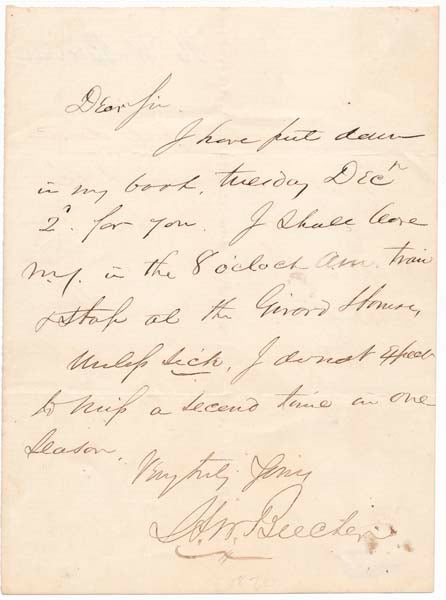 Dear Sir.
I have put down
in my book, tuesday Decr
2d. for you. I shall leave
N.Y. in the 8 o'clock A.M. train
& stop at the Girard House,
Unless sick, I do not expect
to miss a second time in one
season.
Very truly yours
H. W. Beecher